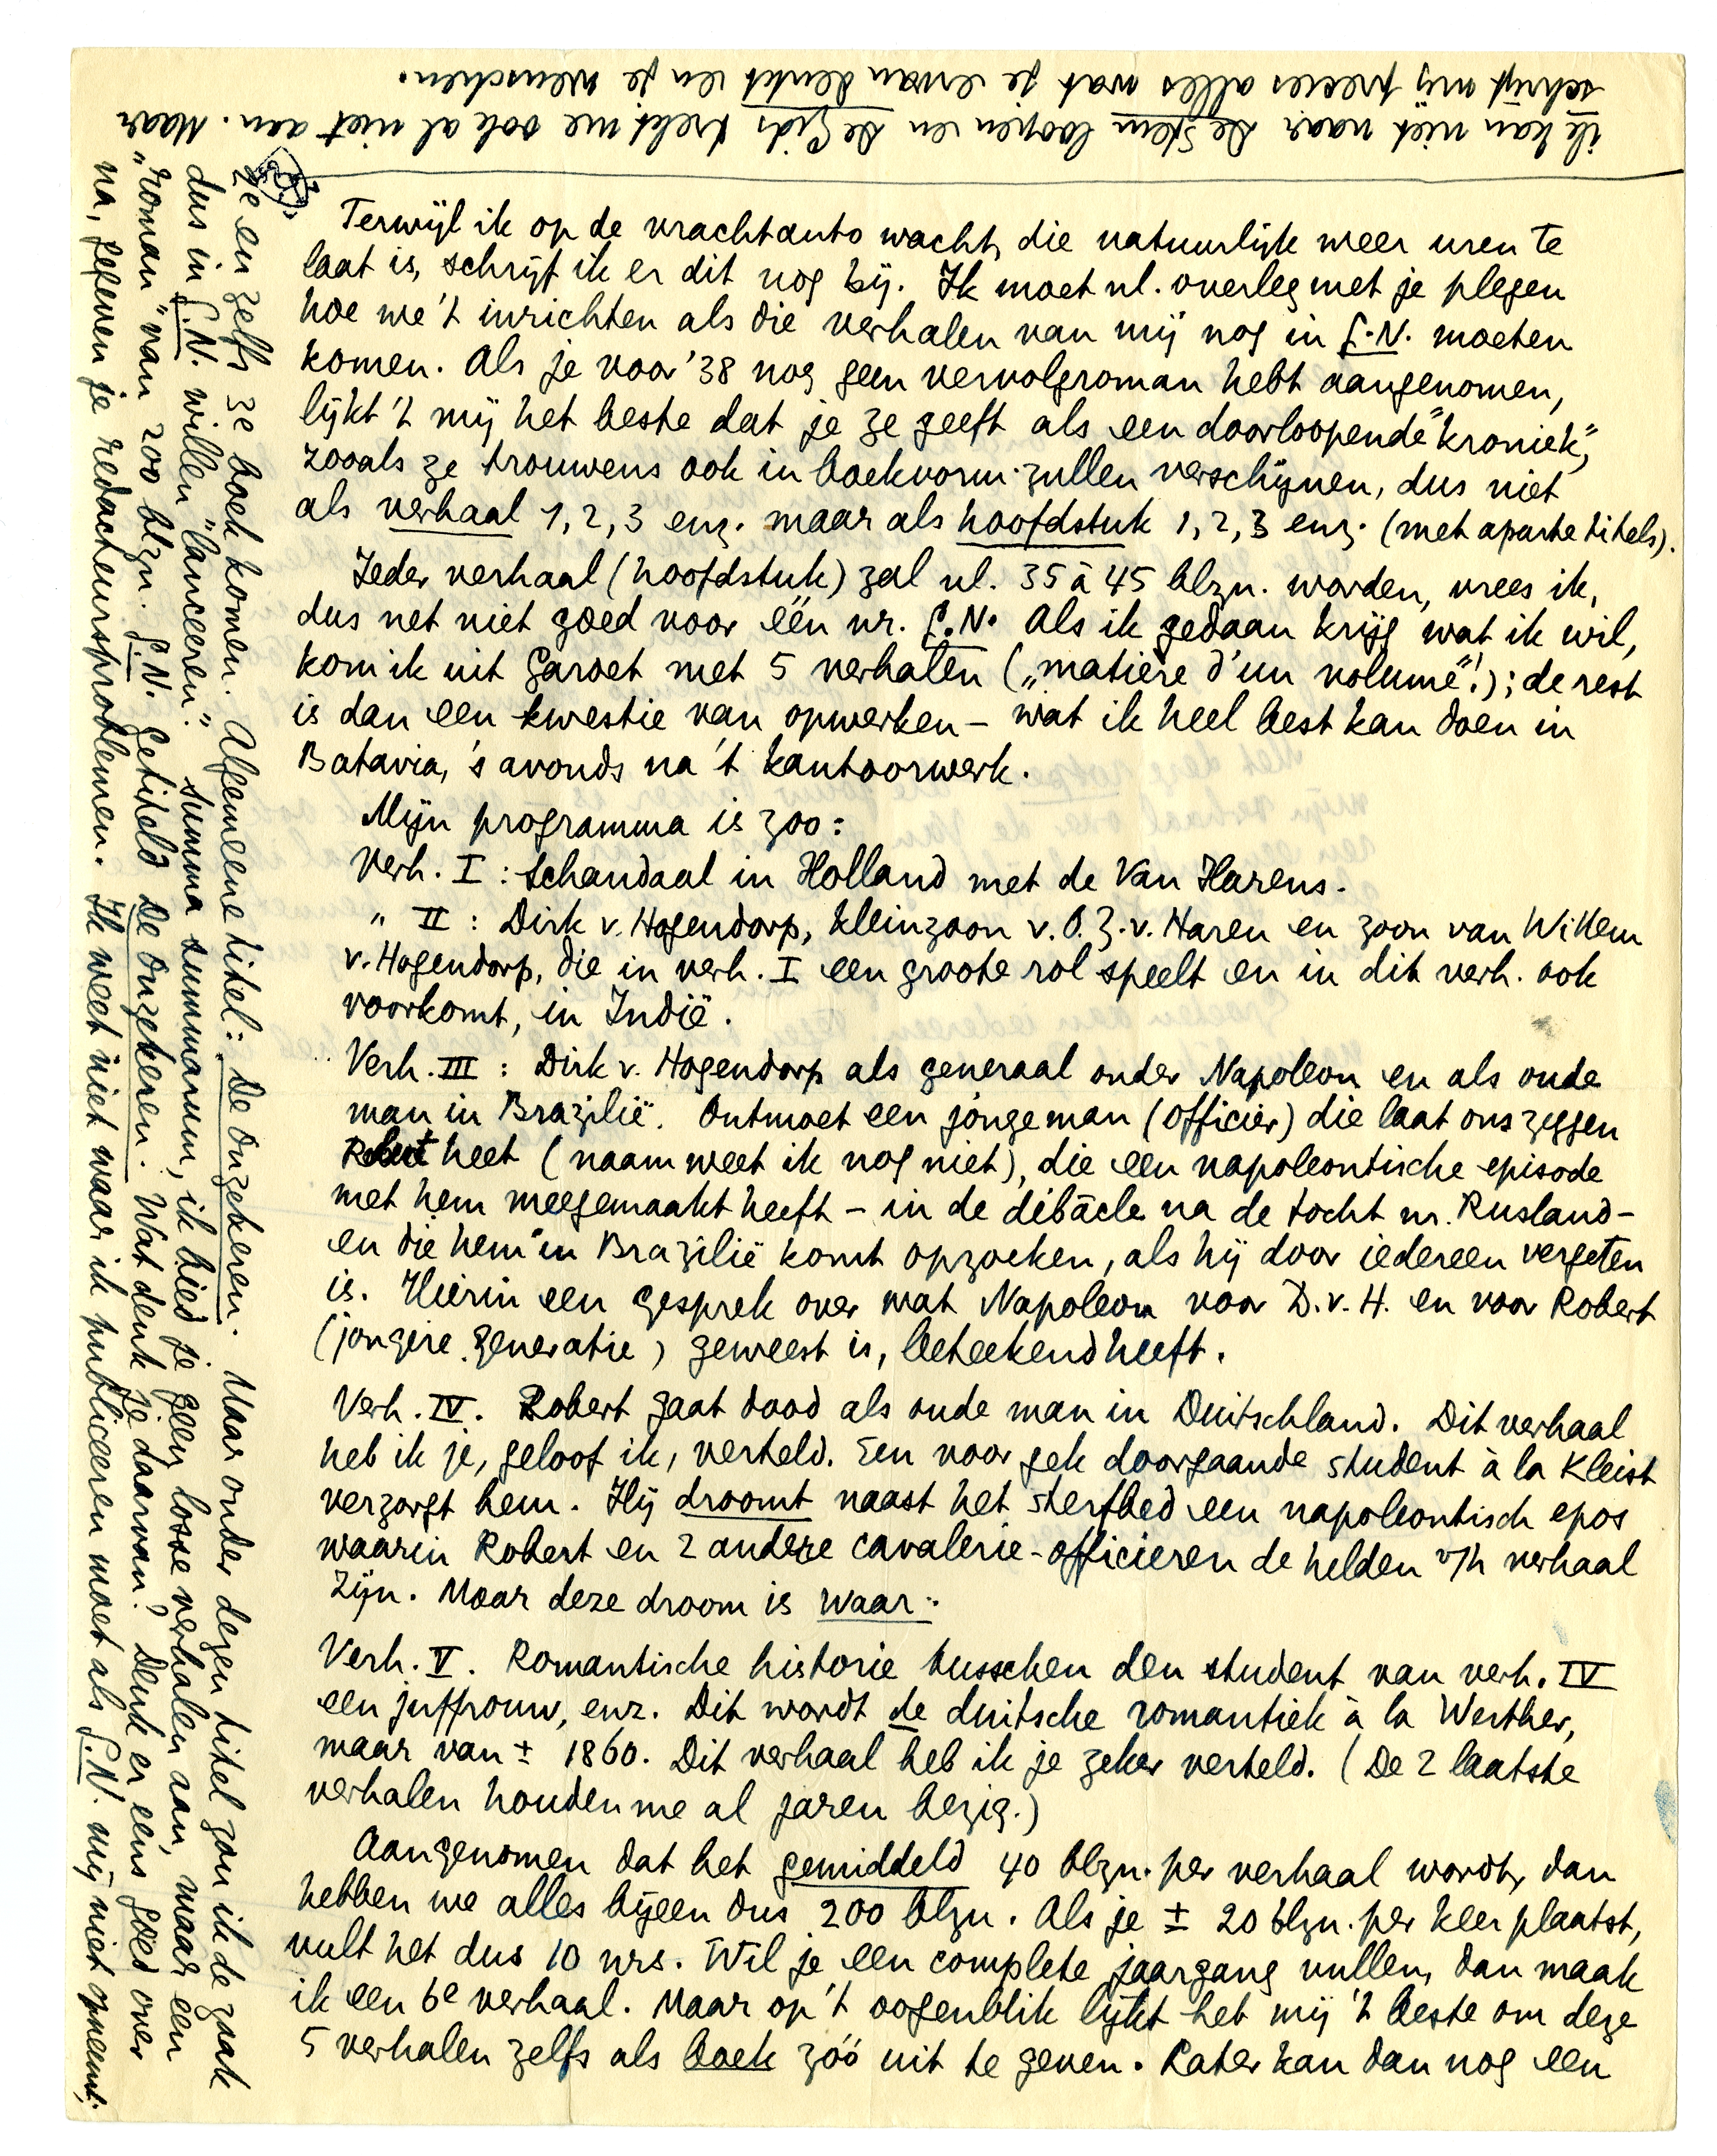 Terwijl ik op de vrachtauto wacht, die natuurlijk weer uren te
laat is, schrijf ik er dit nog bij. Ik moet nl. overleg met je plegen
hoe we 't inrichten als die verhalen van mij nog in G.N. moeten
komen. Als je voor '38 nog geen vervolgroman hebt aangenomen,
lijkt 't mij het beste dat je ze geeft als een doorloopende "kroniek",
zooals ze trouwens ook in boekvorm zullen verschijnen, dus niet
als verhaal 1, 2, 3 enz. maar als hoofdstuk 1, 2, 3 enz. (met aparte titels).
Ieder verhaal (hoofdstuk) zal nl. 35 à 45 blzn. worden, vrees ik,
dus net niet goed voor één nr. G.N. Als ik gedaan krijg wat ik wil,
kom ik uit Garoet met 5 verhalen („matière d'un volume"!); de rest
is dan een kwestie van opwerken – wat ik heel best kan doen in
Batavia, 's avonds na 't kantoorwerk.
Mijn programma is zoo:
Verh. I : Schandaal in Holland met de Van Harens.
" II : Dirk v. Hogendorp, kleinzoon v. O.Z.v. Haren en zoon van Willem
v. Hogendorp, die in verh. I een groote rol speelt en in dit verh. ook
voorkomt, in Indië.
Verh. III : Dirk v. Hogendorp als generaal onder Napoleon en als oude
man in Brazilië. Ontmoet een jonge man (officier) die laat ons zeggen
Robert heet (naam weet ik nog niet), die een napoleontische episode
met hem meegemaakt heeft – in de débâcle na de tocht nr. Rusland –
en die hem in Brazilië komt opzoeken, als hij door iedereen vergeten
is. Hierin een gesprek over wat Napoleon voor D.v.H. en voor Robert
(jongere generatie) geweest is, beteekend heeft.
Verh. IV. Robert gaat dood als oude man in Duitschland. Dit verhaal
heb ik je, geloof ik, verteld. Een voor gek doorgaande student à la Kleist
verzorgt hem. Hij droomt naast het sterfbed een napoleontisch epos
waarin Robert en 2 andere cavalerie-officieren de helden v/h verhaal
zijn. Maar deze droom is waar.
Verh. V. Romantische historie tusschen den student van verh. IV
een juffrouw, enz. Dit wordt de duitsche romantiek à la Werther,
maar van ± 1860. Dit verhaal heb ik je zeker verteld. (De 2 laatste
verhalen houden me al jaren bezig.)
Aangenomen dat het gemiddeld 40 blzn. per verhaal wordt, dan
hebben we alles bijeen dus 200 blzn. Als je ± 20 blzn. per keer plaatst,
vult het dus 10 nrs. Wil je een complete jaargang vullen, dan maak
ik een 6e verhaal. Maar op 't oogenblik lijkt het mij 't beste om deze
5 verhalen zelfs als boek zóó uit te geven. Later kan dan nog een
2e en zelfs 3e boek komen. Algemeene titel: De Onzekeren. Maar onder dezen titel zou ik de zaak
dus in G.N. willen "lanceeren". Summa summarum, ik bied je geen losse verhalen aan, maar een
"roman" van 200 blzn. G.N. Getiteld De Onzekeren. Wat denk je daarvan? Denk er eens goed over
na, gegeven je redacteursproblemen. Ik weet niet waar ik publiceeren moet als G.N. mij niet opneemt;
ik kan niet naar De Stem loopen en De Gids trekt me ook al niet aan. Maar
schrijf mij precies alles wat je ervan denkt en je wenschen.